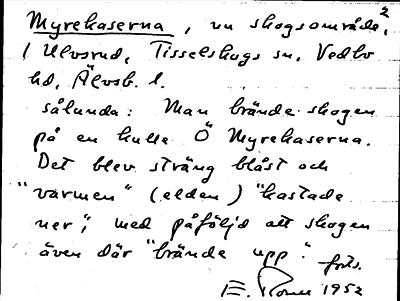 Myrekaserna, nu skogsområde,²
i Ulvsrud, Tisselskogs sn, Vedbo
hd, Älvsb. l.
sålunda: Man brände skogen
på en kulle Ö Myrekaserna.
Det blev sträng blåst och
"värmen" (elden) "kastade
ner", med påföljd att skogen
även där "brände upp".
forts.
E. 1952